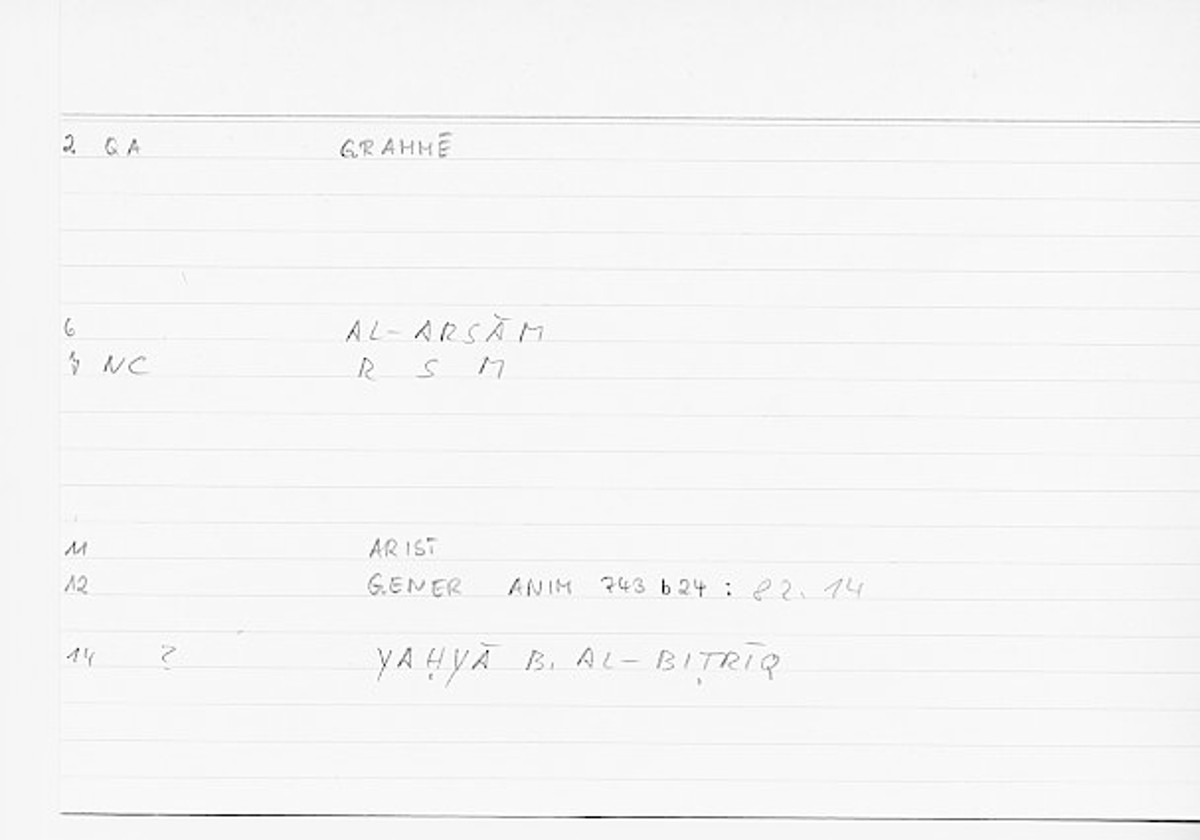 2 QA GRAMMĒ
6 AL-ARSĀM
7 NC R S M
11 ARIST
12 GENER ANIM 743 b24 : 82.14
14 ? YAḤYĀ B. AL-BIṬRĪQ